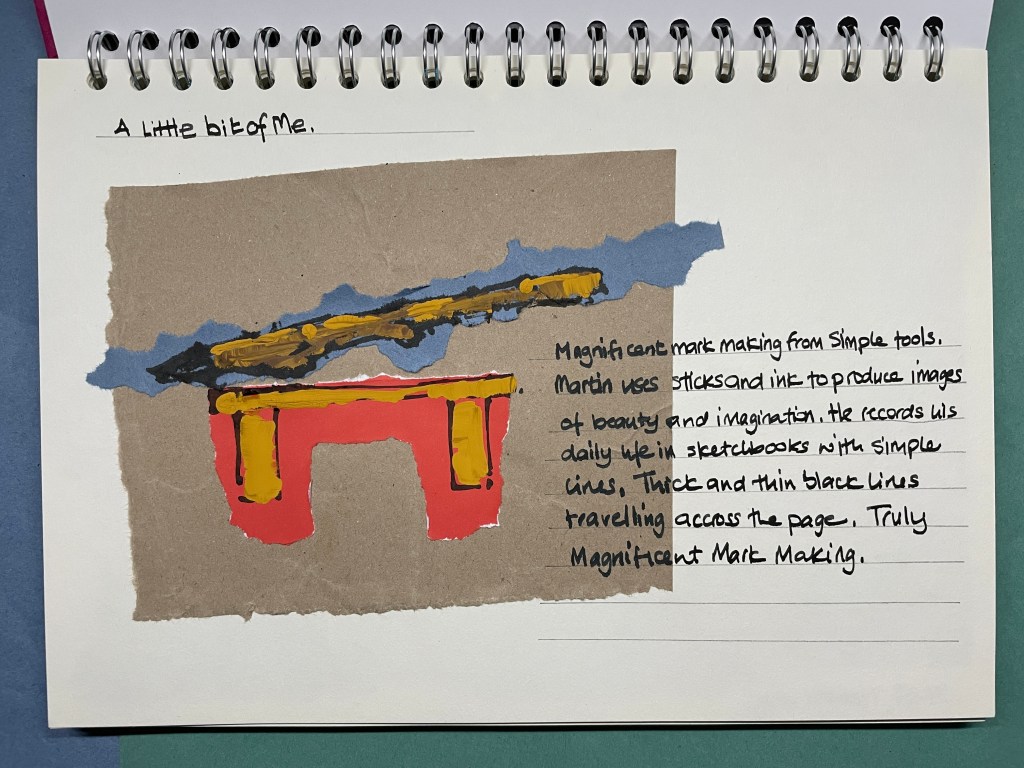 A Little bit of Me.
Magnificent mark making from Simple tools.
Martin uses sticks and ink to produce images
of beauty and imagination. He records his
daily life in sketchbooks with Simple
Lines. Thick and thin black Lines
travelling accross the page. Truly
Magnificent Mark Making.